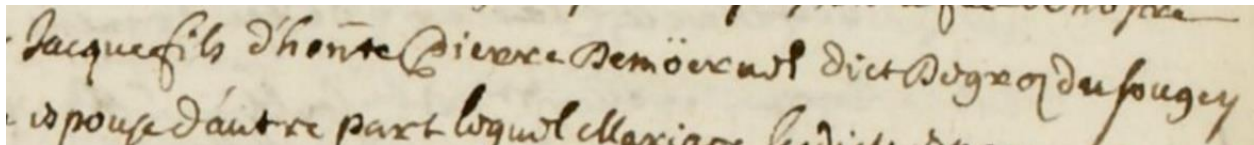 Jacque fils d'honnte Pierre Demöeruel dict Degroz du fougey
espouse d'autre part lequel Mariage